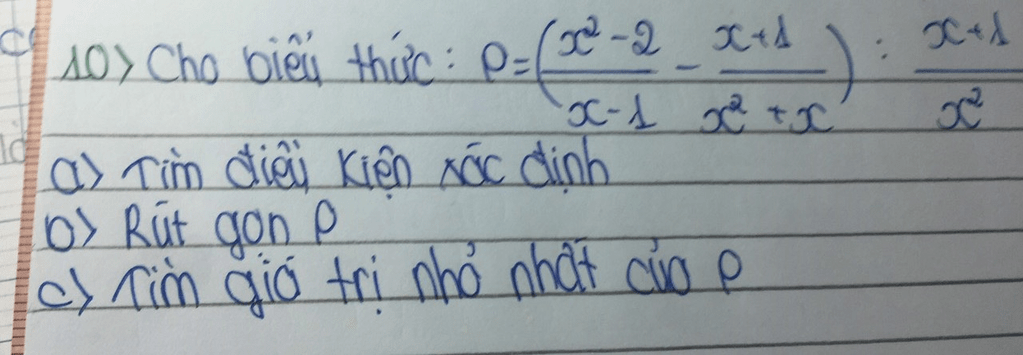 10> Cho biểu thức: P = (x² - 2 / x - 1 - x + 1 / x² + x) : x + 1 / x²
a) Tìm điều kiện xác định
b) Rút gọn P
c) Tìm giá trị nhỏ nhất của P